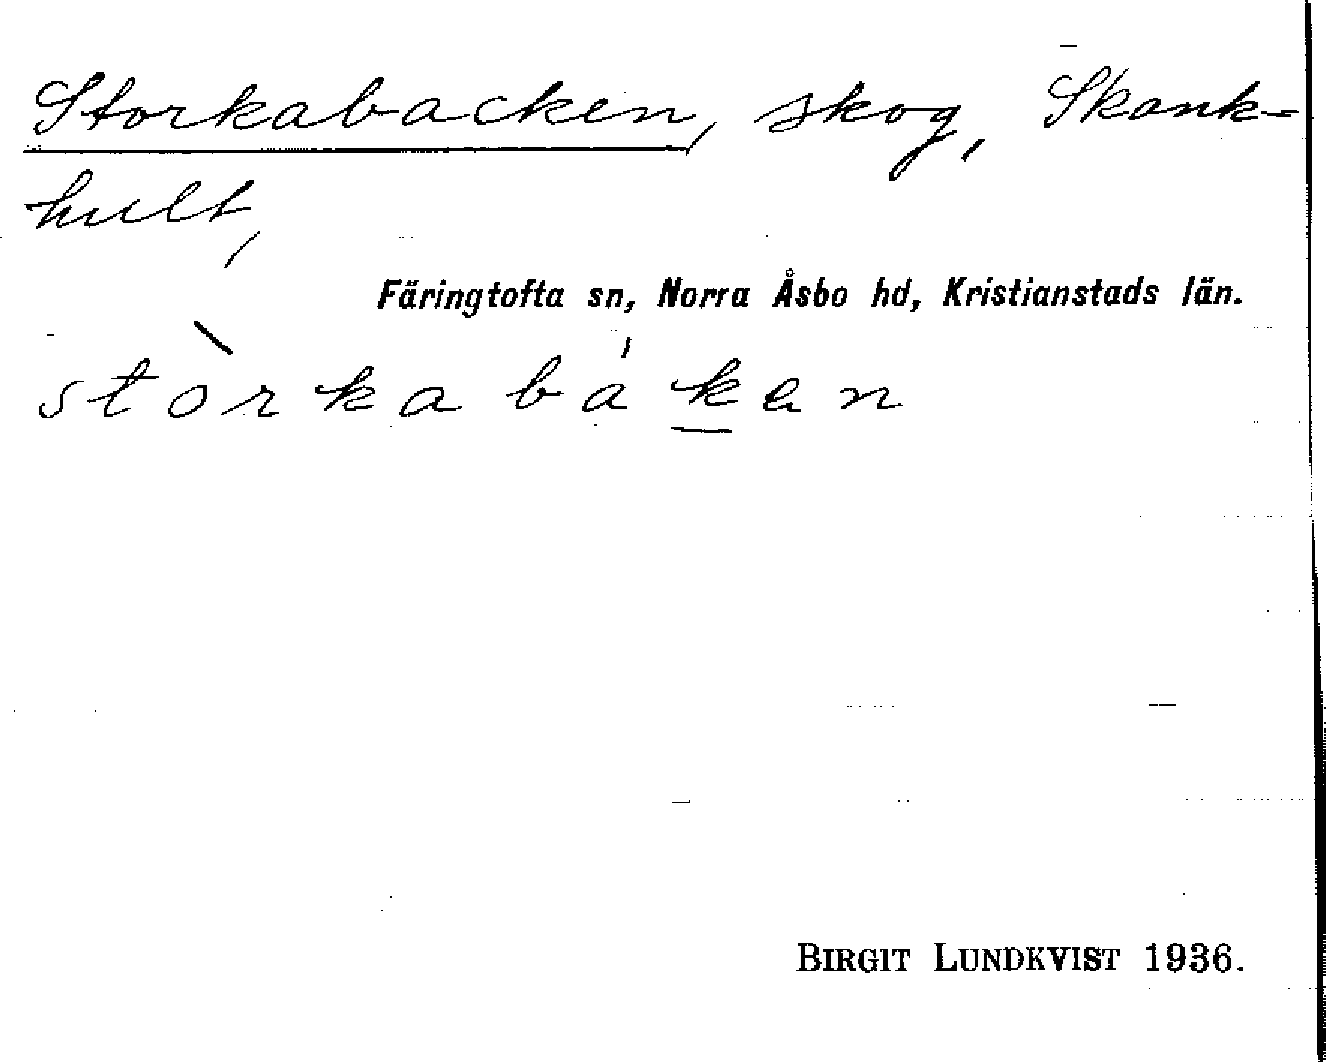 Storkabacken, skog, Skank-
hult,
Färingtofta sn, Norra Åsbo hd, Kristianstads län.
stòrkabákan
BIRGIT LUNDKVIST 1936.